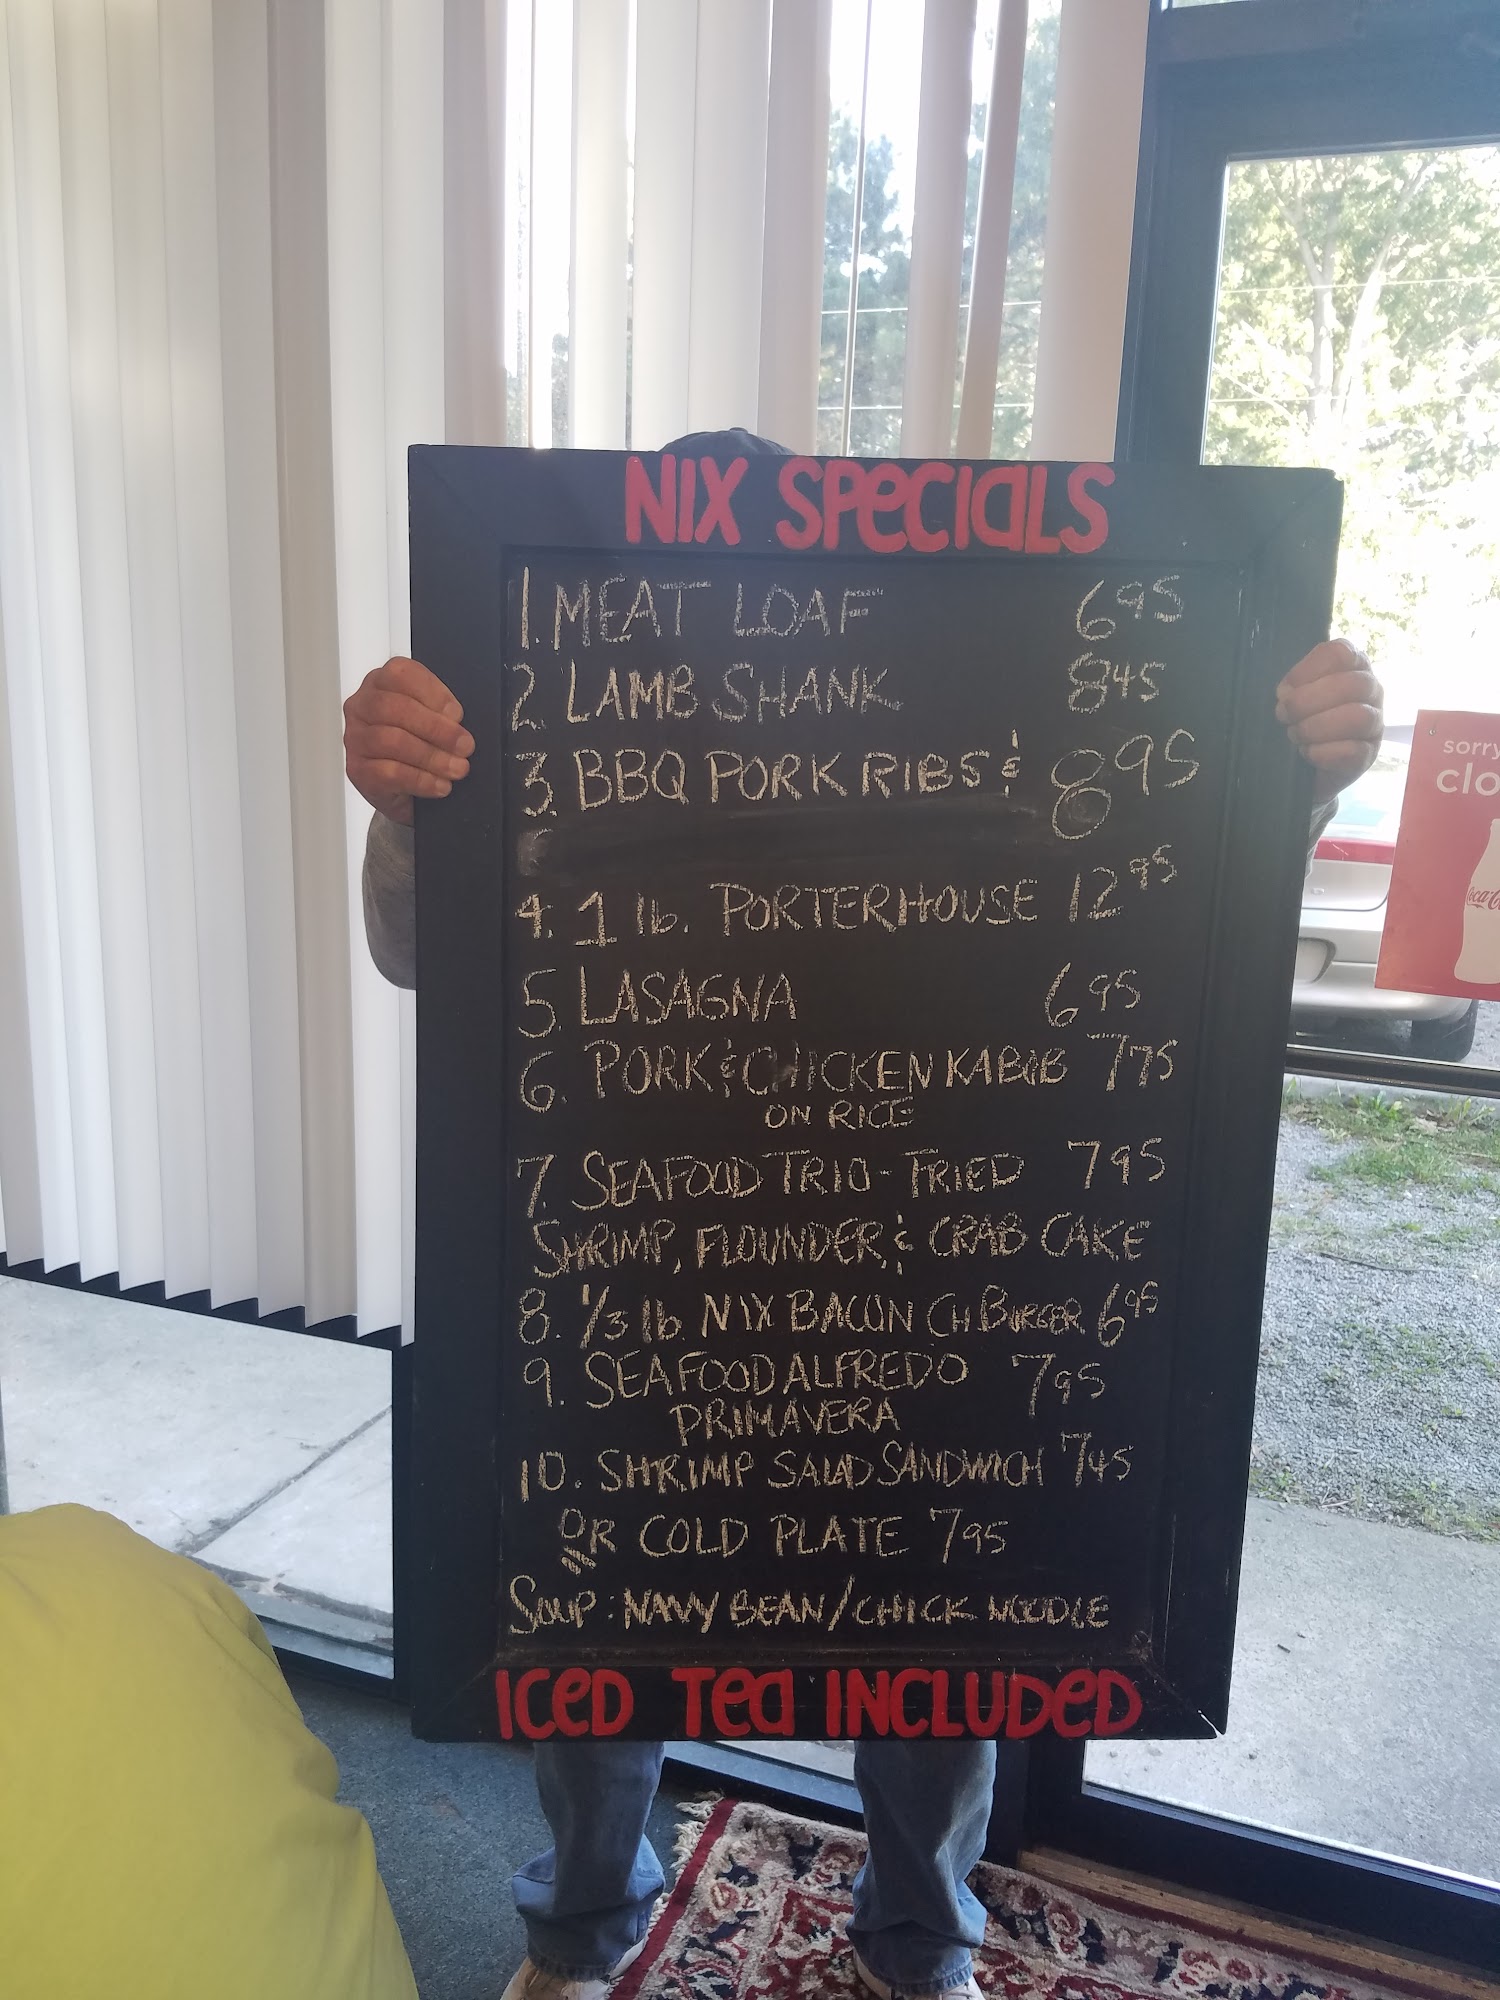 NIX SPECIALS
1. MEAT LOAF 6 95
2. LAMB SHANK 8 45
3. BBQ PORK RIBS & 8 95
4. 1 lb. PORTERHOUSE 12 95
5. LASAGNA 6 95
6. PORK & CHICKEN KABOB 7 75
ON RICE
7. SEAFOOD TRIO - FRIED 7 95
SHRIMP, FLOUNDER, & CRAB CAKE
8. 1/3 lb. NIX BACON CH BURGER 6 95
9. SEAFOOD ALFREDO 7 95
PRIMAVERA
10. SHRIMP SALAD SANDWICH 7 45
OR COLD PLATE 7 95
SOUP: NAVY BEAN/CHICK NOODLE
ICED TEA INCLUDED
sorry
clo